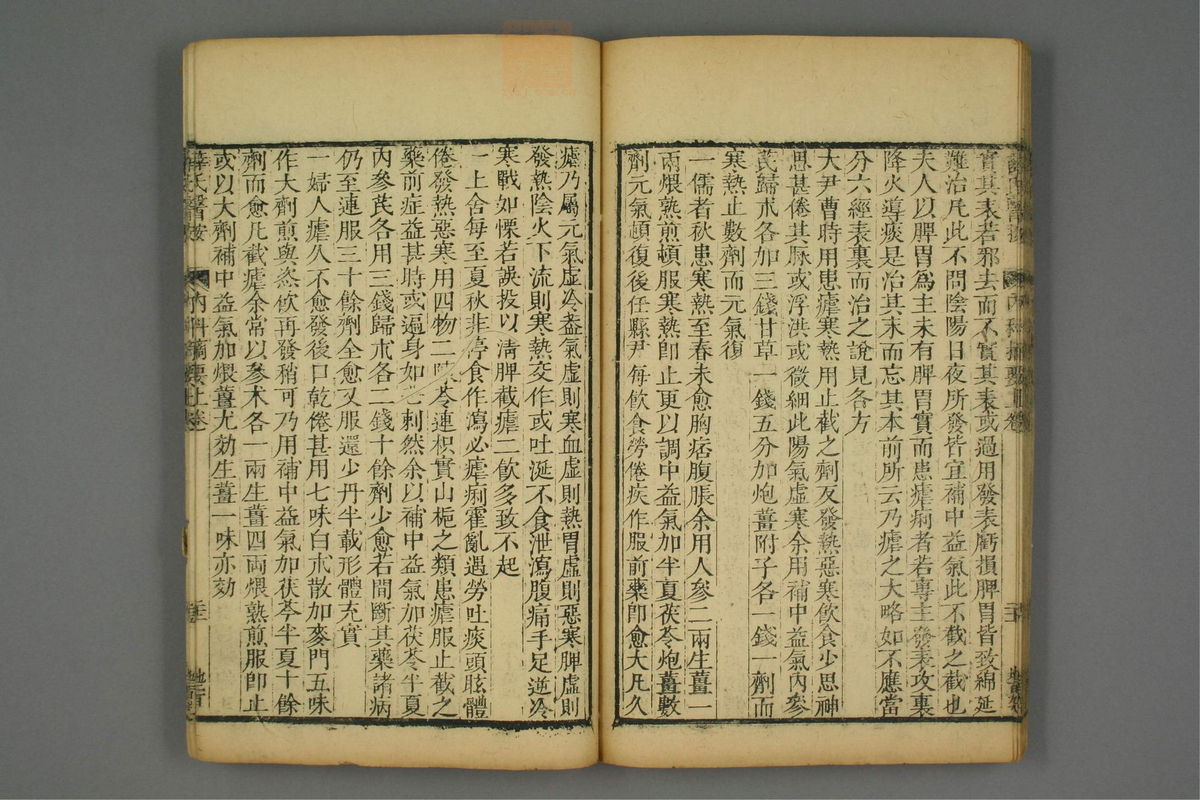 實其表若邪去而不實其表或過用發表虧損脾胃皆致綿延
難治凡此不問陰陽日夜所發皆宜補中益氣此不截之截也
夫人以脾胃爲主未有脾胃實而患瘧痢者若專主發表攻裏
降火導痰是治其末而忘其本前所云乃瘧之大略如不應當
分六經表裏而治之說見各方
大尹曹時用患瘧寒熱用止截之劑反發熱惡寒飲食少思神
思甚倦其脈或浮洪或微細此陽氣虛寒余用補中益氣內參
芪歸朮各加三錢甘草一錢五分加炮薑附子各一錢一劑而
寒熱止數劑而元氣復
一儒者秋患寒熱至春未愈胸痞腹脹余用人參二兩生薑一
兩煨熟煎頓服寒熱卽止更以調中益氣加半夏茯苓炮薑數
劑元氣頓復後任縣尹每飲食勞倦疾作服前藥卽愈大凡久
瘧乃屬元氣虛冷盖氣虛則寒血虛則熱胃虛則惡寒脾虛則
發熱陰火下流則寒熱交作或吐涎不食泄瀉腹痛手足逆冷
寒戰如慄若誤投以清脾截瘧二飲多致不起
一上舍每至夏秋非停食作瀉必瘧痢霍亂遇勞吐痰頭眩體
倦發熱惡寒用四物二陳芩連枳實山梔之類患瘧服止截之
藥前症益甚時或遍身如芒刺然余以補中益氣加茯苓半夏
內參芪各用三錢歸朮各二錢十餘劑少愈若間斷其藥諸病
仍至連服三十餘劑全愈又服還少丹半載形體充實
一婦人瘧久不愈發後口乾倦甚用七味白朮散加麥門五味
作大劑煎與恣飲再發稍可乃用補中益氣加茯苓半夏十餘
劑而愈凡截瘧余常以參朮各一兩生薑四兩煨熟煎服卽止
或以大劑補中益氣加煨薑尤効生薑一味亦効
薛氏醫按
內科摘要上卷